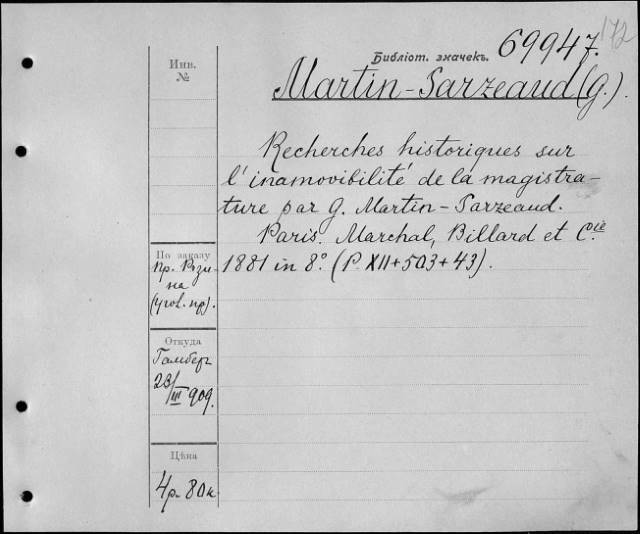 172
Библіот. значекъ. 69947.
Martin-Sarzeaud (G.).
Инв.
№
Recherches historiques sur
l'inamovibilité de la magistra-
ture par G. Martin-Sarzeaud.
Paris. Marchal, Billard et Cie.
1881 in 8°. (P. XII+503+43).
По заказу
пр. Рози-
на
(угол. пр).
Откуда
Гамбер
23/III 909.
Цѣна
4р. 80к